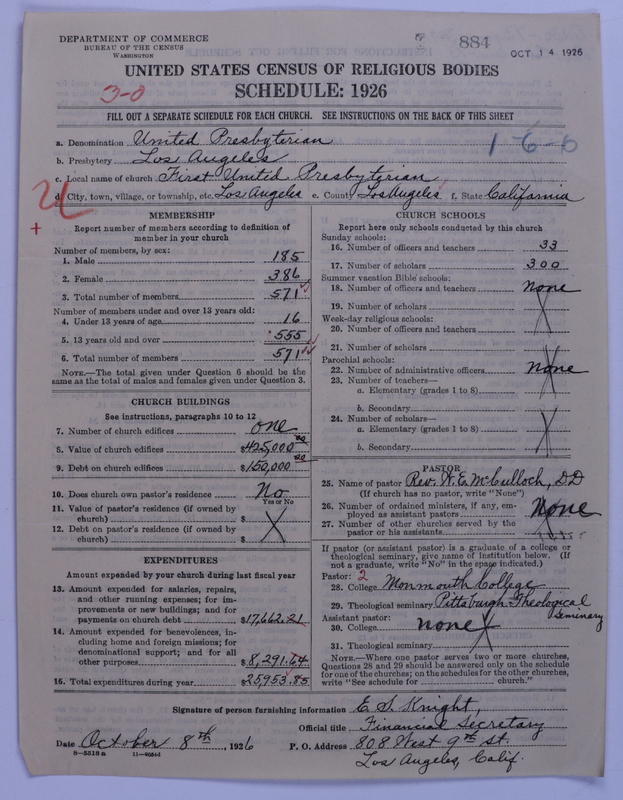 DEPARTMENT OF COMMERCE
BUREAU OF THE CENSUS
WASHINGTON
884
OCT 14 1926
UNITED STATES CENSUS OF RELIGIOUS BODIES
SCHEDULE: 1926
3-0
FILL OUT A SEPARATE SCHEDULE FOR EACH CHURCH. SEE INSTRUCTIONS ON THE BACK OF THIS SHEET
a. Denomination United Presbyterian
1-6-0
b. Presbytery Los Angeles
c. Local name of church First United Presbyterian
d. City, town, village, or township, etc. Los Angeles e. County Los Angeles f. State California
MEMBERSHIP
Report number of members according to definition of
member in your church
Number of members, by sex:
1. Male 185
2. Female 386
3. Total number of members 571
Number of members under and over 13 years old:
4. Under 13 years of age 16
5. 13 years old and over 555
6. Total number of members 571
NOTE.—The total given under Question 6 should be
same as the total of males and females given under Question 3.
CHURCH BUILDINGS
See instructions, paragraphs 10 to 12
7. Number of church edifices one
8. Value of church edifices $425,000 00
9. Debt on church edifices $150,000 00
10. Does church own pastor's residence No
Yes or No
11. Value of pastor's residence (if owned by
church) $
12. Debt on pastor's residence (if owned by
church) $
EXPENDITURES
Amount expended by your church during last fiscal year
13. Amount expended for salaries, repairs,
and other running expenses; for im-
provements or new buildings; and for
payments on church debt $17,662.21
14. Amount expended for benevolences, in-
cluding home and foreign missions; for
denominational support; and for all
other purposes $8,291.64
15. Total expenditures during year $25,953.85
CHURCH SCHOOLS
Report here only schools conducted by this church
Sunday schools:
16. Number of officers and teachers 33
17. Number of scholars 300
Summer vacation Bible schools:
18. Number of officers and teachers None
19. Number of scholars
Week-day religious schools:
20. Number of officers and teachers
21. Number of scholars
Parochial schools:
22. Number of administrative officers None
23. Number of teachers—
a. Elementary (grades 1 to 8)
b. Secondary
24. Number of scholars—
a. Elementary (grades 1 to 8)
b. Secondary
PASTOR
25. Name of pastor Rev. W. E. McCulloch, D.D
(If church has no pastor, write "None")
26. Number of ordained ministers, if any, em-
ployed as assistant pastors None
27. Number of other churches served by the
pastor or his assistants
If pastor (or assistant pastor) is a graduate of a college or
theological seminary, give name of institution below. (If
not a graduate, write "No" in the space indicated.)
Pastor: 2
28. College Monmouth College
29. Theological seminary Pittsburgh Theological
Seminary
Assistant pastor:
30. College none
31. Theological seminary
NOTE.—Where one pastor serves two or more churches,
Questions 28 and 29 should be answered only on the schedule
for one of the churches; on the schedules for the other churches,
write "See schedule for church."
Signature of person furnishing information E S Knight,
Official title Financial Secretary
Date October 8th, 1926 P. O. Address 808 West 9th St.
Los Angeles, Calif.
8-5518 a